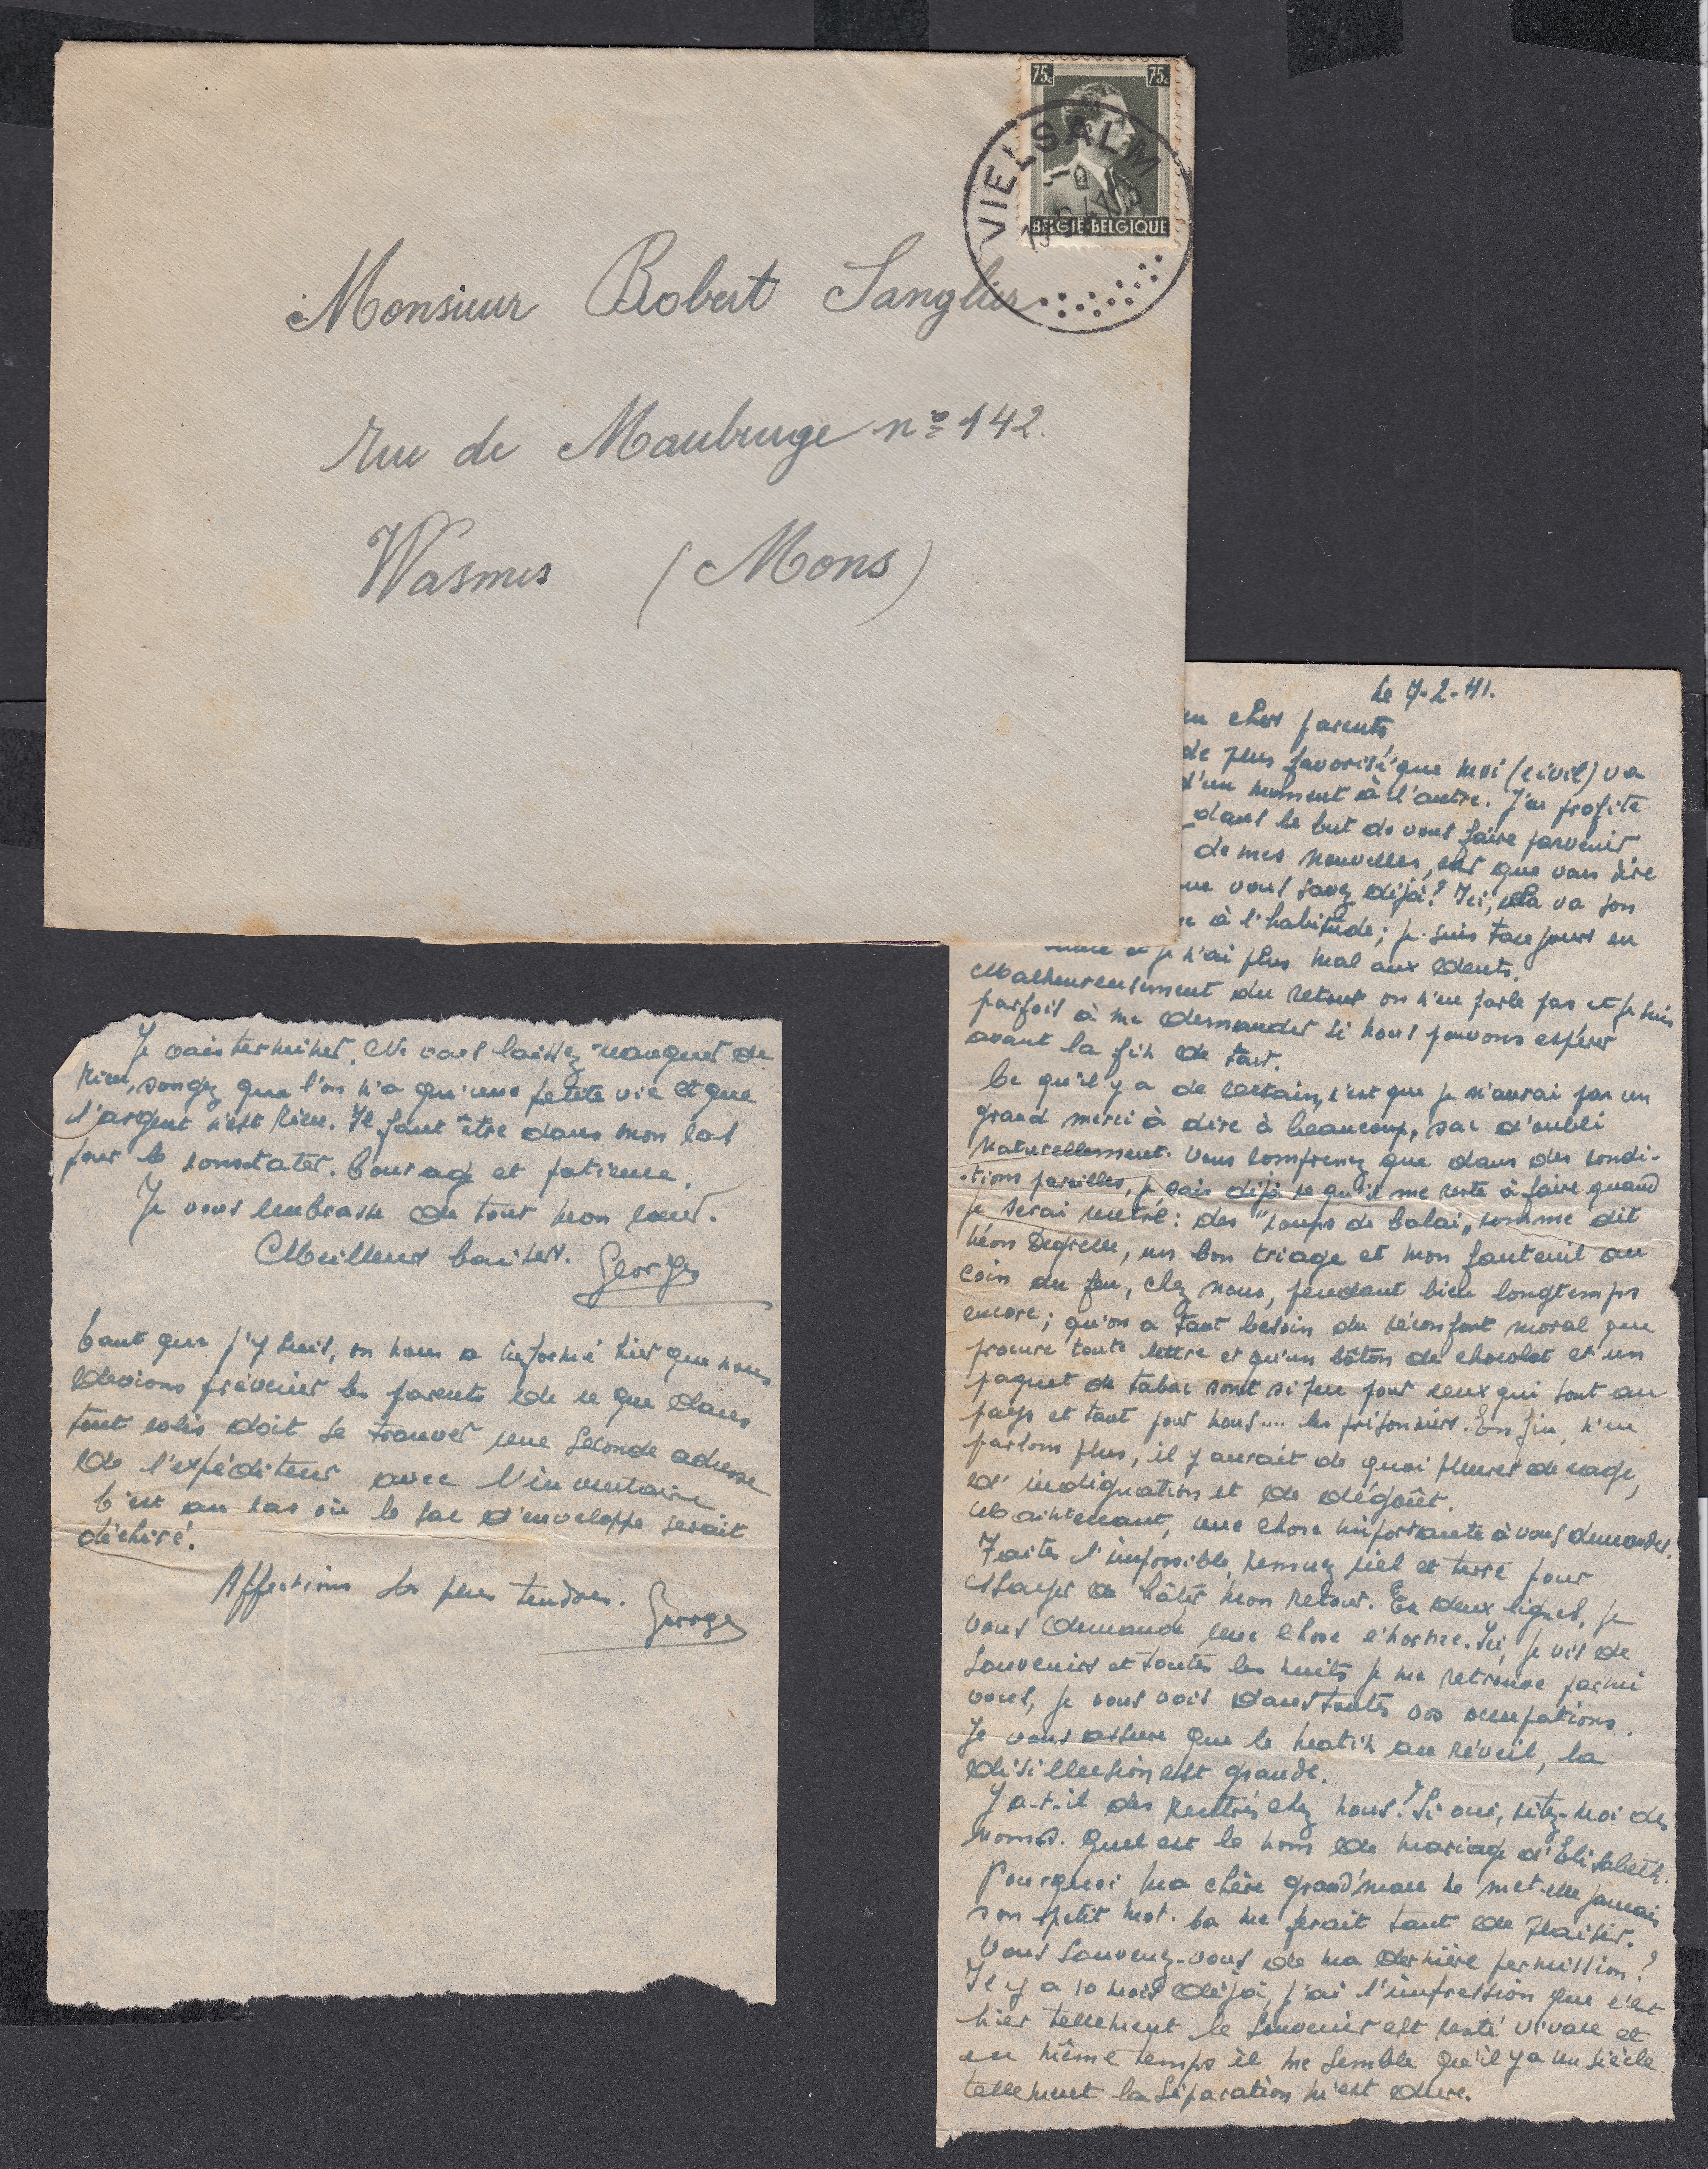 75c 75c
BELGIE-BELGIQUE
VIELSALM
Monsieur Robert Sanglier
rue de Maubeuge n° 142.
Wasmes (Mons)
Le 7-2-41.
chers parents
de plus favorisé que moi (civil) va
d'un moment à l'autre. J'en profite
dans le but de vous faire parvenir
de mes nouvelles, car que vous dire
que vous savez déjà? Ici, cela va son
à l'habitude; je suis toujours en
et je n'ai plus mal aux dents.
Malheureusement du retour on n'en parle pas et je suis
parfois à me demander si nous pouvons espérer
avant la fin de tout.
Ce qu'il y a de certain, c'est que je n'aurai pas un
grand merci à dire à beaucoup, sac d'oubli
naturellement. Vous comprenez que dans des condi-
-tions pareilles, je sais déjà ce qu'il me reste à faire quand
je serai rentré: des "coups de balai" comme dit
Léon Degrelle, un bon triage et mon fauteuil au
coin du feu, chez nous, pendant bien longtemps
encore; qu'on a tant besoin du réconfort moral que
procure toute lettre et qu'un bâton de chocolat et un
paquet de tabac sont si peu pour ceux qui sont au
pays et tant pour nous.... les prisonniers. Enfin, n'en
parlons plus, il y aurait de quoi pleurer de rage,
d'indignation et de dégoût.
Maintenant, une chose importante à vous demander.
Faites l'impossible, remuez ciel et terre pour
essayer de hâter mon retour. En deux lignes, je
vous demande une chose énorme. Ici, je vis de
souvenirs et toutes les nuits je me retrouve parmi
vous, je vous vois dans toutes vos occupations.
Je vous assure que le matin au réveil, la
désillusion est grande.
Y a-t-il des rentrés chez nous? Si oui, citez-moi des
noms. Quel est le nom de mariage d'Elisabeth.
Pourquoi ma chère grand'man ne met-elle jamais
son petit mot. Ca me ferait tant de plaisir.
Vous souvenez-vous de ma dernière permission?
Il y a 10 mois déjà, j'ai l'impression que c'est
hier tellement le souvenir est resté vivace et
en même temps il me semble qu'il y a un siècle
tellement la séparation m'est dure.
Je vais terminer. Ne vous laissez manquer de
rien, songez que l'on n'a qu'une petite vie et que
l'argent n'est rien. Il faut être dans mon cas
pour le constater. Courage et patience.
Je vous embrasse de tout mon cœur.
Meilleurs baisers. Georges
Tant que j'y suis, on nous a informé hier que nous
devions prévenir les parents de ce que dans
tout colis doit se trouver une seconde adresse
de l'expéditeur avec l'inventaire.
C'est au cas où le sac d'enveloppe serait
déchiré.
Affections les plus tendres. Georges